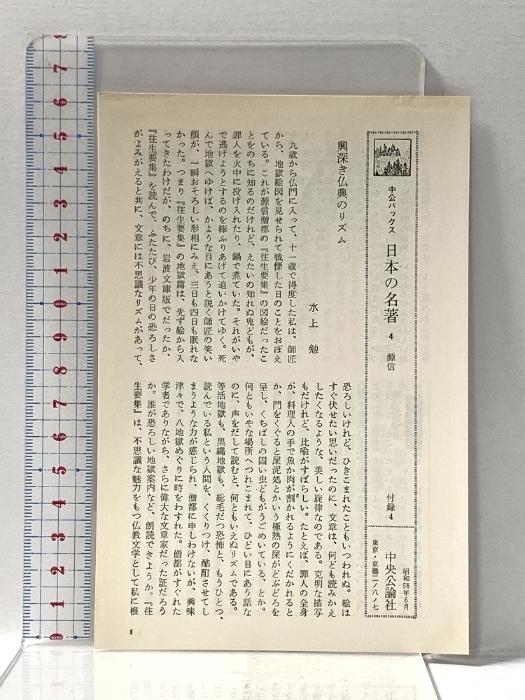 中公バックス 日本の名著 4 源信
付録4
中央公論社
昭和58年6月
東京・京橋二ノ八ノ七
興深き仏典のリズム
水上 勉
九歳から仏門に入って、十一歳で得度した私は、師匠
から、地獄絵図を見せられて戦慄した日のことをおぼえ
ている。これが源信僧都の『往生要集』の図絵だったこ
とをのちに知るのだけれど、えたいの知れぬ鬼どもが、
罪人を火中に投げ入れたり、鍋で煮ていた。それがいや
で逃げようとするのを棒ふりあげて追いかけてゆく。死
んで地獄へゆけば、かような目にあうと説く師匠の笑い
顔が、一瞬おそろしい形相にみえ、三日も四日も眠れな
かった。つまり『往生要集』の地獄篇は、先ず絵から入
ってきたわけだが、のちに、岩波文庫版でだったか、
『往生要集』を読んで、ふたたび、少年の日の恐ろしさ
がよみがえると共に、文章には不思議なリズムがあって、
恐ろしいけれど、ひきこまれたこともいつわれぬ。絵は
すぐ伏せたい思いだったのに、文章は、何ども読みかえ
したくなるような、美しい旋律なのである。克明な描写
もだけれど、比喩がすばらしい。たとえば、罪人の全身
が、料理人の手で魚か肉が割かれるようにくだかれると
か、門をくぐると屎泥処とかいう極熱の屎がどぶどろを
呈し、くちばしの固い虫どもがうごめいている、とか。
何ともいやな場所へつれこまれて、ひどい目にあう話な
のに、声をだして読むと、何ともいえぬリズムである。
等活地獄も、黒縄地獄も、総毛だつ恐怖と、もうひとつ、
読んでいる私という人間を、くくりつけ、酩酊させてし
まうような力が感じられ、僧都に申しわけないが、興味
津々で、八地獄めぐりに時をわすれた。僧都がすぐれた
学者でありながら、さらに偉大な文章家だった証だろう
か。誰が恐ろしい地獄案内など、朗読できようか。『往
生要集』は、不思議な魅力をもつ仏教文学として私に根
1
8
7
6
5
4
3
2
1
0
9
8
7
6
5
4
3
2